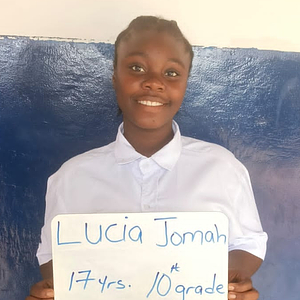 Lucia Jomah
17 yrs. 10th grade